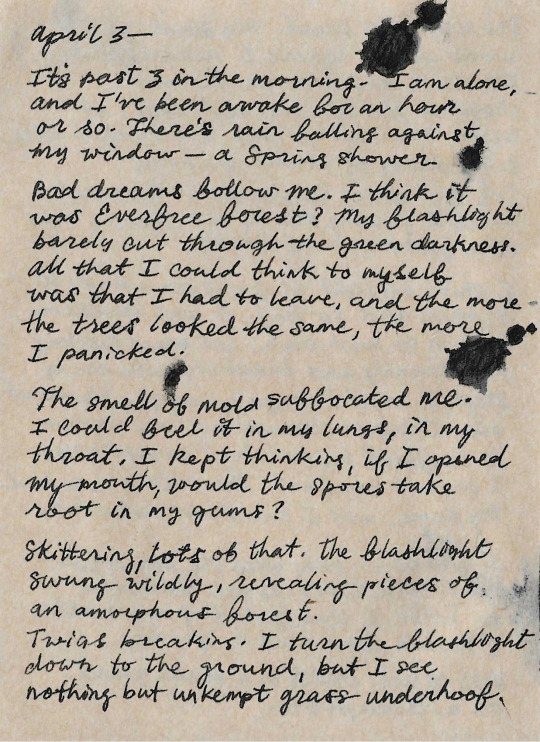 April 3—
It's past 3 in the morning. I am alone,
and I've been awake for an hour
or so. There's rain falling against
my window — a Spring shower.
Bad dreams follow me. I think it
was Everfree forest? My flashlight
barely cut through the green darkness.
All that I could think to myself
was that I had to leave, and the more
the trees looked the same, the more
I panicked.
The smell of mold suffocated me.
I could feel it in my lungs, in my
throat. I kept thinking, if I opened
my mouth, would the spores take
root in my gums?
Skittering, lots of that. The flashlight
swung wildly, revealing pieces of
an amorphous forest.
Twigs breaking. I turn the flashlight
down to the ground, but I see
nothing but unkempt grass underhoof.